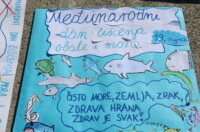 Međunarodni
dan čišćenja
obale i mora
19. rujna
ČISTO MORE, ZEMLJA, ZRAK,
ZDRAVA HRANA,
ZDRAV JE SVAK!